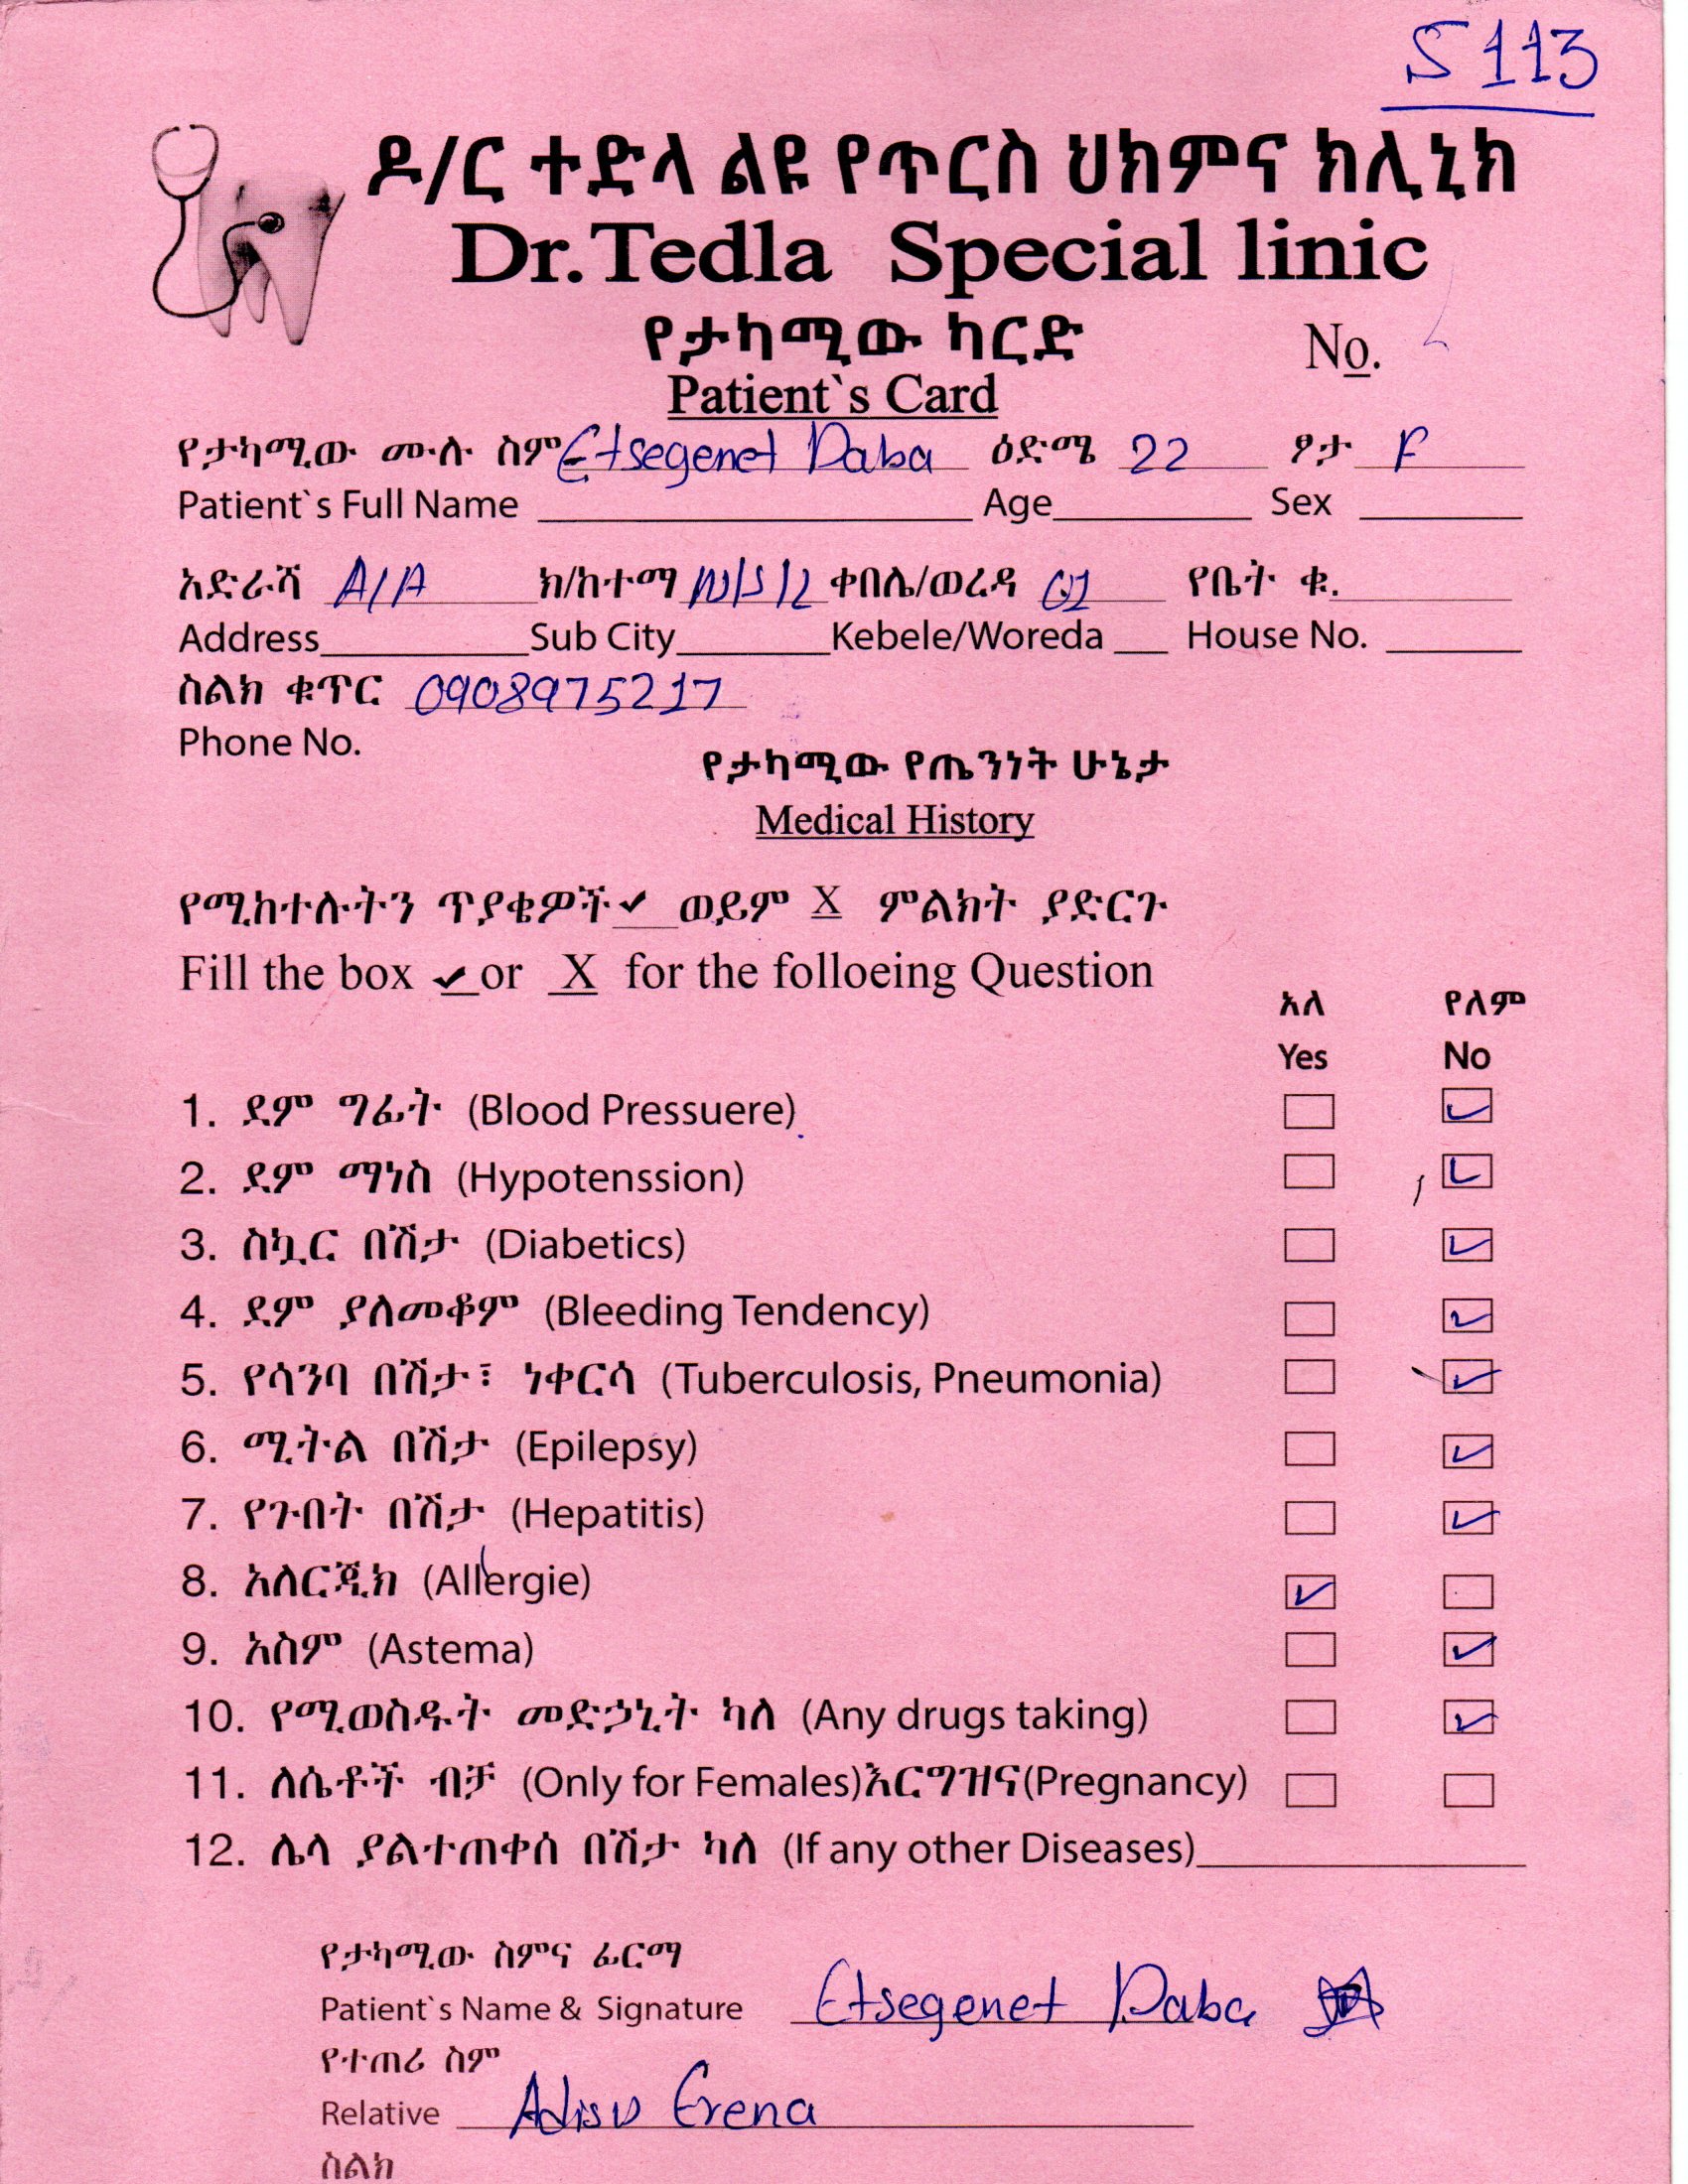 S 113
ዶ/ር ተድላ ልዩ የጥርስ ህክምና ክሊኒክ
Dr.Tedla Special linic
የታካሚው ካርድ
No.
Patient`s Card
የታካሚው ሙሉ ስም Etsegenet Daba ዕድሜ 22 ፆታ F
Patient`s Full Name Age Sex
አድራሻ A/A ክ/ከተማ ቀበሌ/ወረዳ 01 የቤት ቁ.
Address Sub City Kebele/Woreda House No.
ስልክ ቁጥር 0908975217
Phone No.
የታካሚው የጤንነት ሁኔታ
Medical History
የሚከተሉትን ጥያቄዎች ✓ ወይም X ምልክት ያድርጉ
Fill the box ✓ or X for the folloeing Question
አለ የለም
Yes No
1. ደም ግፊት (Blood Pressuere) ✓
2. ደም ማነስ (Hypotenssion) ✓
3. ስኳር በሽታ (Diabetics) ✓
4. ደም ያለመቆም (Bleeding Tendency) ✓
5. የሳንባ በሽታ፣ ነቀርሳ (Tuberculosis, Pneumonia) ✓
6. ሚትል በሽታ (Epilepsy) ✓
7. የጉበት በሽታ (Hepatitis) ✓
8. አለርጂክ (Allergie) ✓
9. አስም (Astema) ✓
10. የሚወስዱት መድኃኒት ካለ (Any drugs taking) ✓
11. ለሴቶች ብቻ (Only for Females)እርግዝና(Pregnancy)
12. ሌላ ያልተጠቀሰ በሽታ ካለ (If any other Diseases)
የታካሚው ስምና ፊርማ
Patient`s Name & Signature Etsegenet Daba
የተጠሪ ስም
Relative Adisu Erena
ስልክ